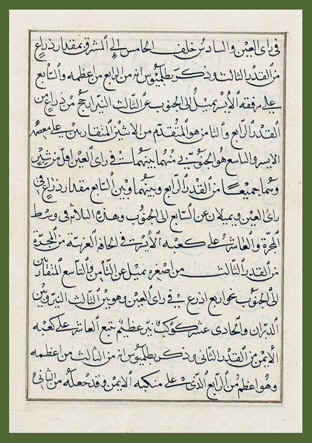 في رأي العين والسادس خلف الخامس إلى الشرق بمقدار ذراع
من القدر الثالث وذكر بطلميوس انه من الرابع من اعظمه والسابع
على مرفقه الأيسر يميل إلى الجنوب عن الثالث النير ارجح من ذراعين
من القدر الرابع والثامن هو المتقدم من الاثنين المتقاربين على معصمه
الايسر والتاسع هو الجنوبي منهما بينهما في رأي العين اقل من شبرين
وهما جميعًا من القدر الرابع وبينهما وبين السابع مقدار ذراع في
رأي العين ويميلان عن السابع إلى الجنوب وهذه الثلاثة في وسط
المجرة والعاشر على كعبه الأيسر في الحافة الغربية من المجرة
من القدر الثالث من اصغره يميل عن الثامن والتاسع المتقاربين
إلى الجنوب نحو اربع اذرع في رأي العين وهو بين الثالث النير وبين
الدبران والحادي عشر كوكب نير عظيم يتبع العاشر على كعبه
الأيمن من القدر الثاني وذكر بطلميوس انه من الثالث من اعظمه
وهو اعظم من الرابع الذي على منكبه الأيمن وقد جعله من الثاني